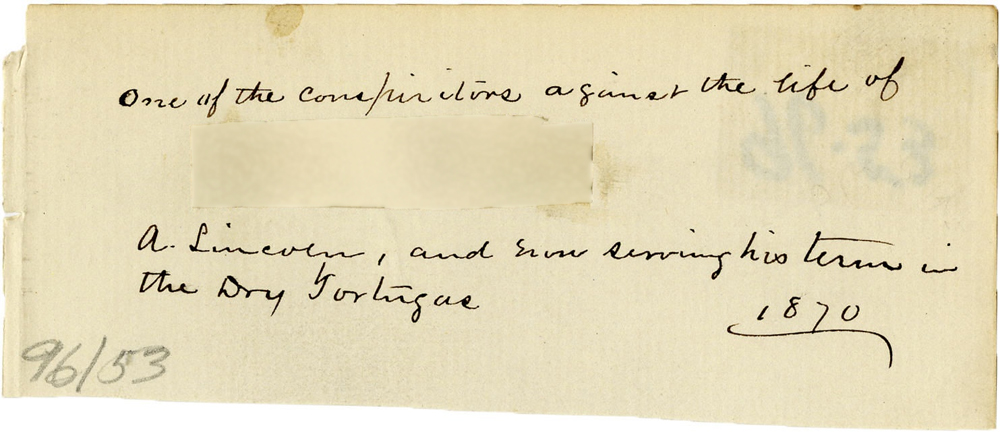 One of the conspiritors against the life of
A. Lincoln, and now serving his term in
the Dry Tortugas
1870
96/53